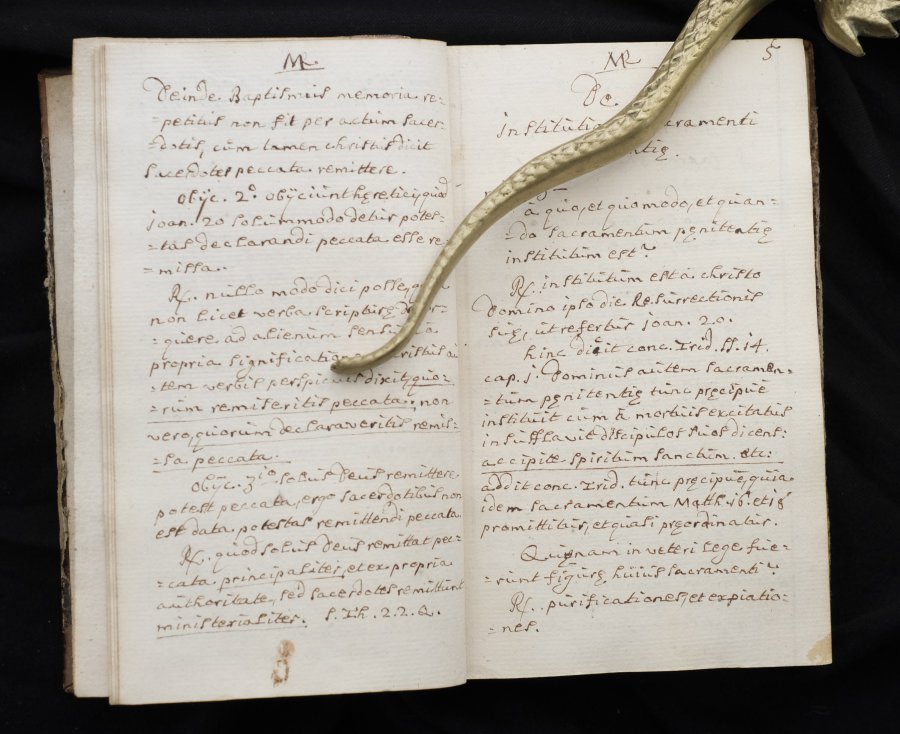 MR
Deinde Baptismus memoria re=
=petitus non fit per actum sacer=
=dotis, cum tamen christus dicit
sacerdotes peccata remittere.
Obijc. 2º obijciunt hęretici, quod
Joan. 20 solummodo detur potes=
=tas declarandi peccata esse re=
=missa.
R. nullo modo dici posse,
non licet verba scripturę
=quere ad alienum sensum a
propria significatione christus au
=tem verbis perspicuis dixit, quo=
=rum remiseritis peccata, non
vero, quorum declaraveritis remis=
=sa peccata.
Obijc. 3tio solus Deus remittere
potest peccata, ergo sacerdotibus non
est data potestas remittendi peccata
R. quod solus Deus remittat pec=
=cata principaliter, et ex propria
authoritate, sed sacerdotes remittunt
ministerialiter. S. Th. 2. 2. Q.
MR 5
De
institutio sacramenti
a quo, et quomodo, et quan=
=do sacramentum pęnitentię
institutum est?
R. institutum est a christo
Domino ipso die Resurrectionis
suę, ut refertur Joan. 20.
hinc dicit conc. Trid. SS. 14.
cap. 1. Dominus autem sacramen=
=tum pęnitentię tunc pręcipuè
instituit cum à mortuis excitatus
insufflavit discipulos suos dicens:
accipite spiritum sanctum. etc:
addit conc. Trid. tunc pręcipuè, quia
idem sacramentum Matth. 16. et 18
promittitur, et quasi pręordinatur.
Quęnam in veteri lege fue=
=runt figurę huius sacramenti?
R. purificationes, et expiatio=
=nes.